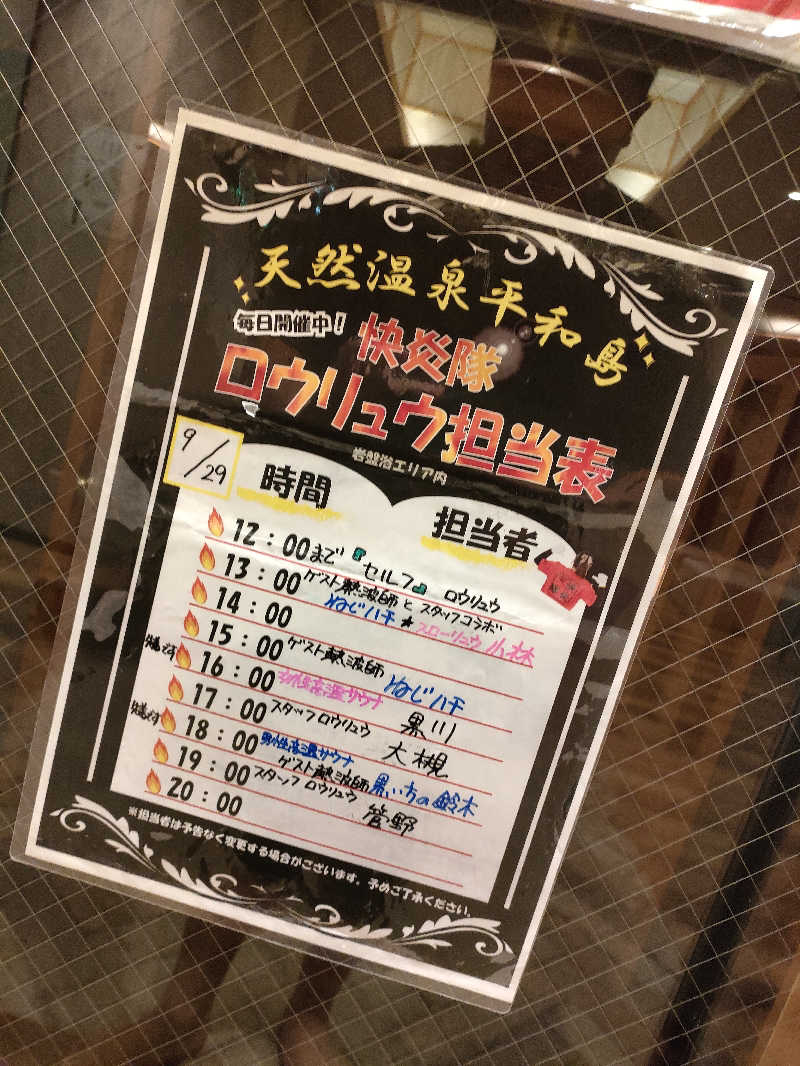 天然温泉平和島
毎日開催中！
快炎隊
ロウリュウ担当表
岩盤浴エリア内
9/29
時間
担当者
12：00まで『セルフ』ロウリュウ
13：00 ゲスト熱波師とスタッフコラボ
14：00 ねじハチ★スローリュウ小林
15：00 ゲスト熱波師
16：00 女性高温サウナ ねじハチ
17：00 スタッフロウリュウ 黒川
18：00 男性高温サウナ 大槻
19：00 ゲスト熱波師 黒い方の鈴木
20：00 スタッフロウリュウ 管野
※担当者は予告なく変更する場合がございます。予めご了承ください。